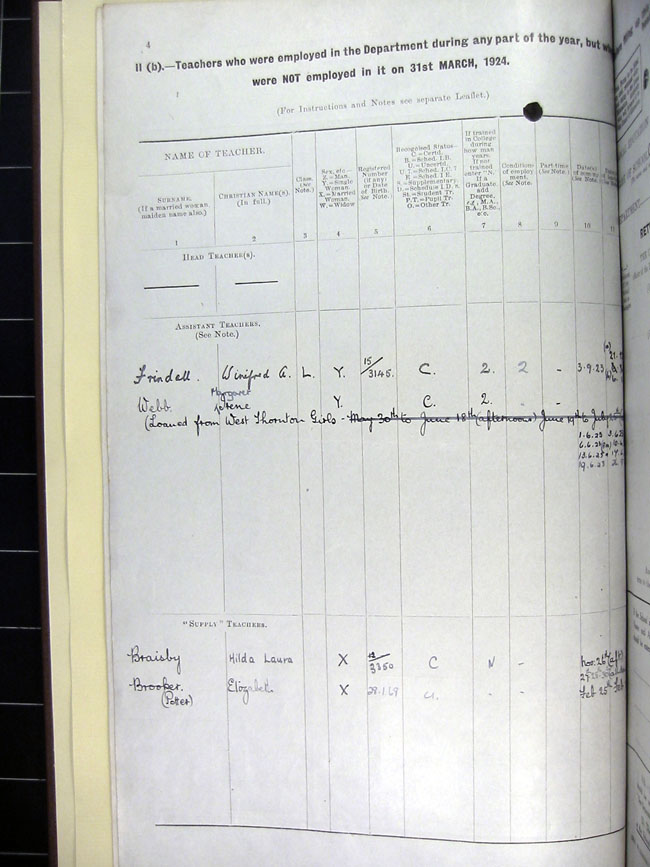 4
II (b).—Teachers who were employed in the Department during any part of the year, but
were NOT employed in it on 31st MARCH, 1924.
(For Instructions and Notes see separate Leaflet.)
NAME OF TEACHER.
SURNAME.
(If a married woman
maiden name also.)
CHRISTIAN NAME(S).
(In full.)
Class.
(see
Note.)
Sex, etc.—
Z.=Man.
Y.=Single
Woman.
X.=Married
Woman.
W.=Widow
Registered
Number
(if any)
or Date
of Birth.
See Note.)
Recognised Status—
C.=Certd.
B.=Sched. I.B.
U.=Uncertd.
S.=Supplementary.
St.=Student Tr.
P.T.=Pupil Tr.
O.=Other Tr.
If trained
in College
during
how many
years.
If not
trained
enter "N.
If a
Graduate,
add
Degree,
e.g., M.A.,
B.A., B.Sc.,
etc.
Conditions
of employ-
ment.
(See Note.)
Part-time
(See Note.)
1 2 3 4 5 6 7 8 9 10 11
HEAD TEACHER(S).
ASSISTANT TEACHERS.
(See Note.)
Frindell. Winifred A. L. Y. 15/3145. C. 2. 2 - 3.9.23
Margaret
Webb. Irene Y. C. 2. - -
(Loaned from West Thornton Girls - May 30th to June 18th (afternoons) June 19th to July
1.6.23
19.6.23
"SUPPLY" TEACHERS.
Braisby Hilda Laura X 3350 C N - Nov. 26th
Brooker. Elizabeth. X 28.1.69 U. - - Feb 25th Feb
(Potter)